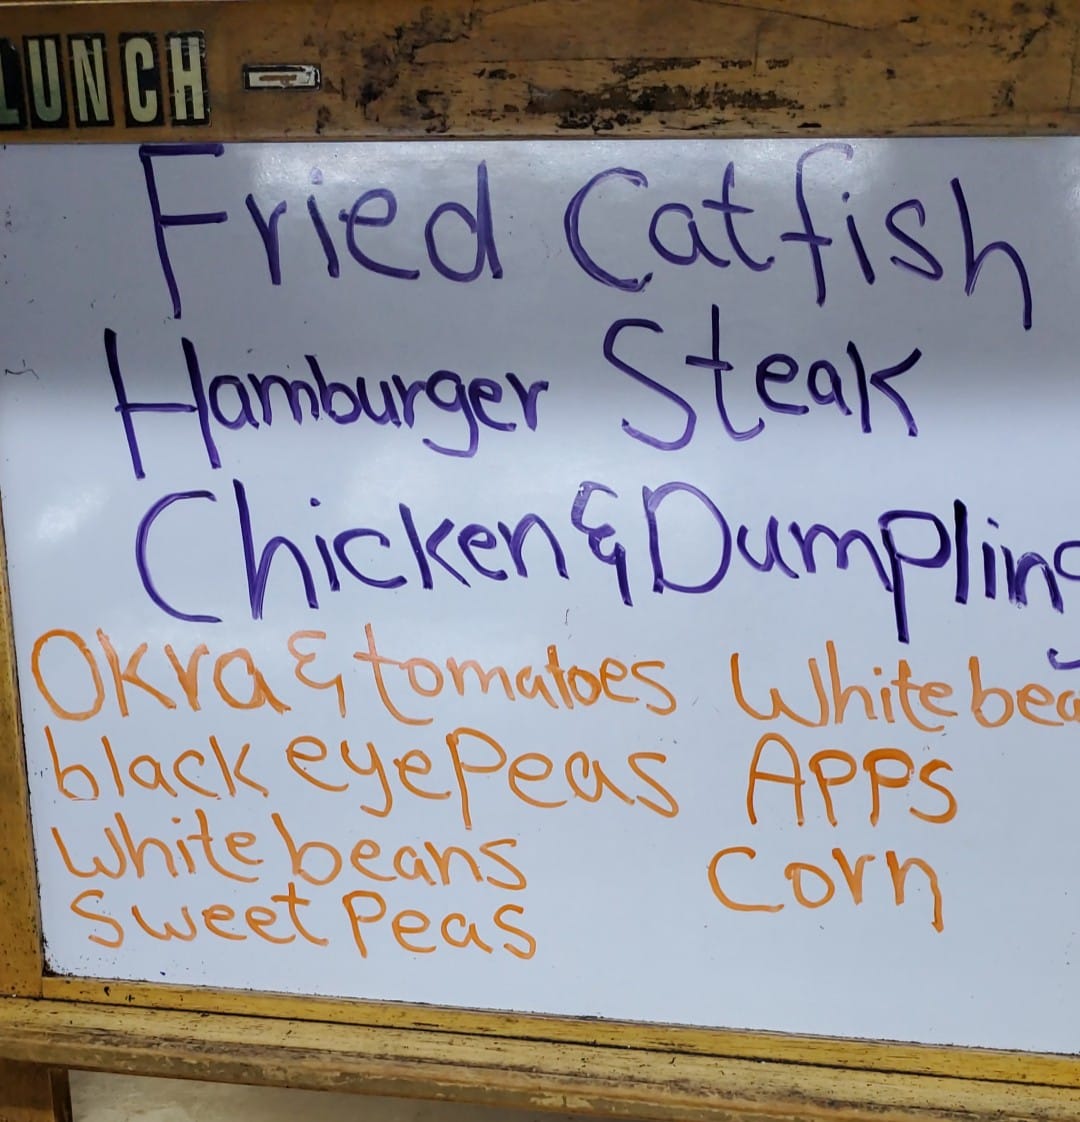 LUNCH
Fried Catfish
Hamburger Steak
Chicken & Dumpling
Okra & tomatoes White bea
black eye Peas APPS
White beans Corn
Sweet Peas